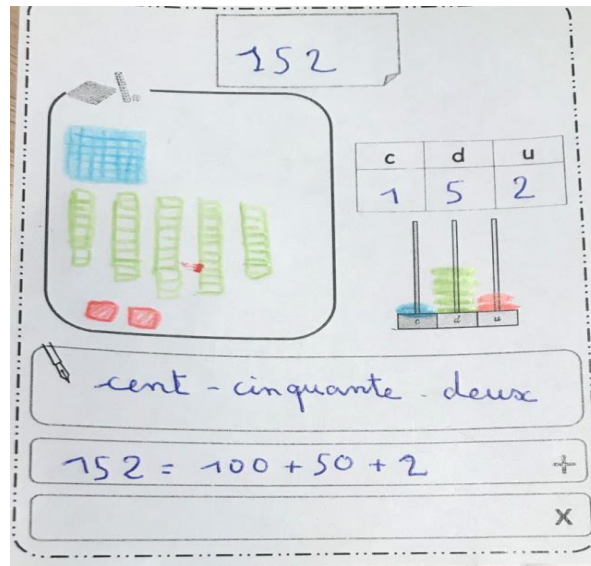 152
c d u
1 5 2
c d u
cent-cinquante-deux
152 = 100 + 50 + 2 +
x